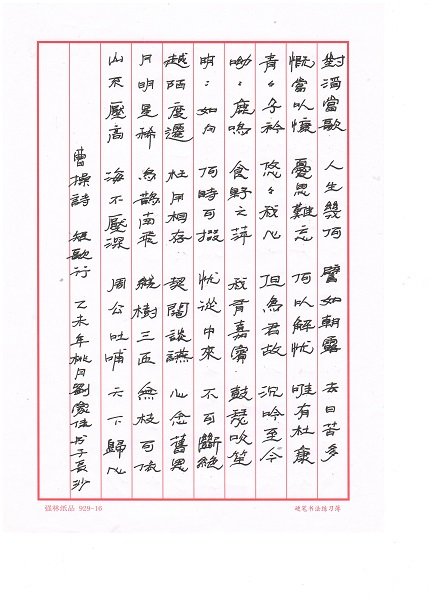 對酒當歌 人生幾何 譬如朝露 去日苦多
慨當以慷 憂思難忘 何以解忧 唯有杜康
青々子衿 悠々我心 但爲君故 沉吟至今
呦:鹿鳴 食野之苹 我有嘉賓 鼓瑟吹笙
明:如月 何時可掇 忧從中來 不可斷絕
越陌度遷 枉用相存 契闊談讌 心念舊恩
月明星稀 烏鵲南飛 繞樹三匝 無枝可依
山不壓高 海不壓深 周公吐哺 天下歸心
曹操詩 短歌行 乙未年桃月劉家佳书于長沙
媒林纸品 929-16
硬笔书法练习簿